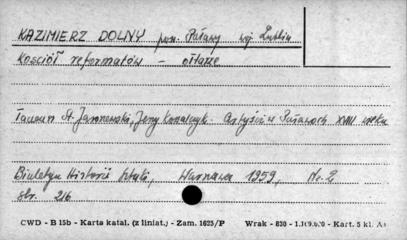 KAZIMIERZ DOLNY pow. Puławy woj. Lublin
Kościół reformatów - ołtarze
Tadeusz St. Jaroszewski, Jerzy Kowalczyk. Artyści w Puławach XVIII wieku
Biuletyn Historii Sztuki, Warszawa 1959, Nr. 2
str. 216
CWD - B 15b - Karta katal. (z liniat.) - Zam. 1625/P Wrak - 830 - Kart. 5 kl. A